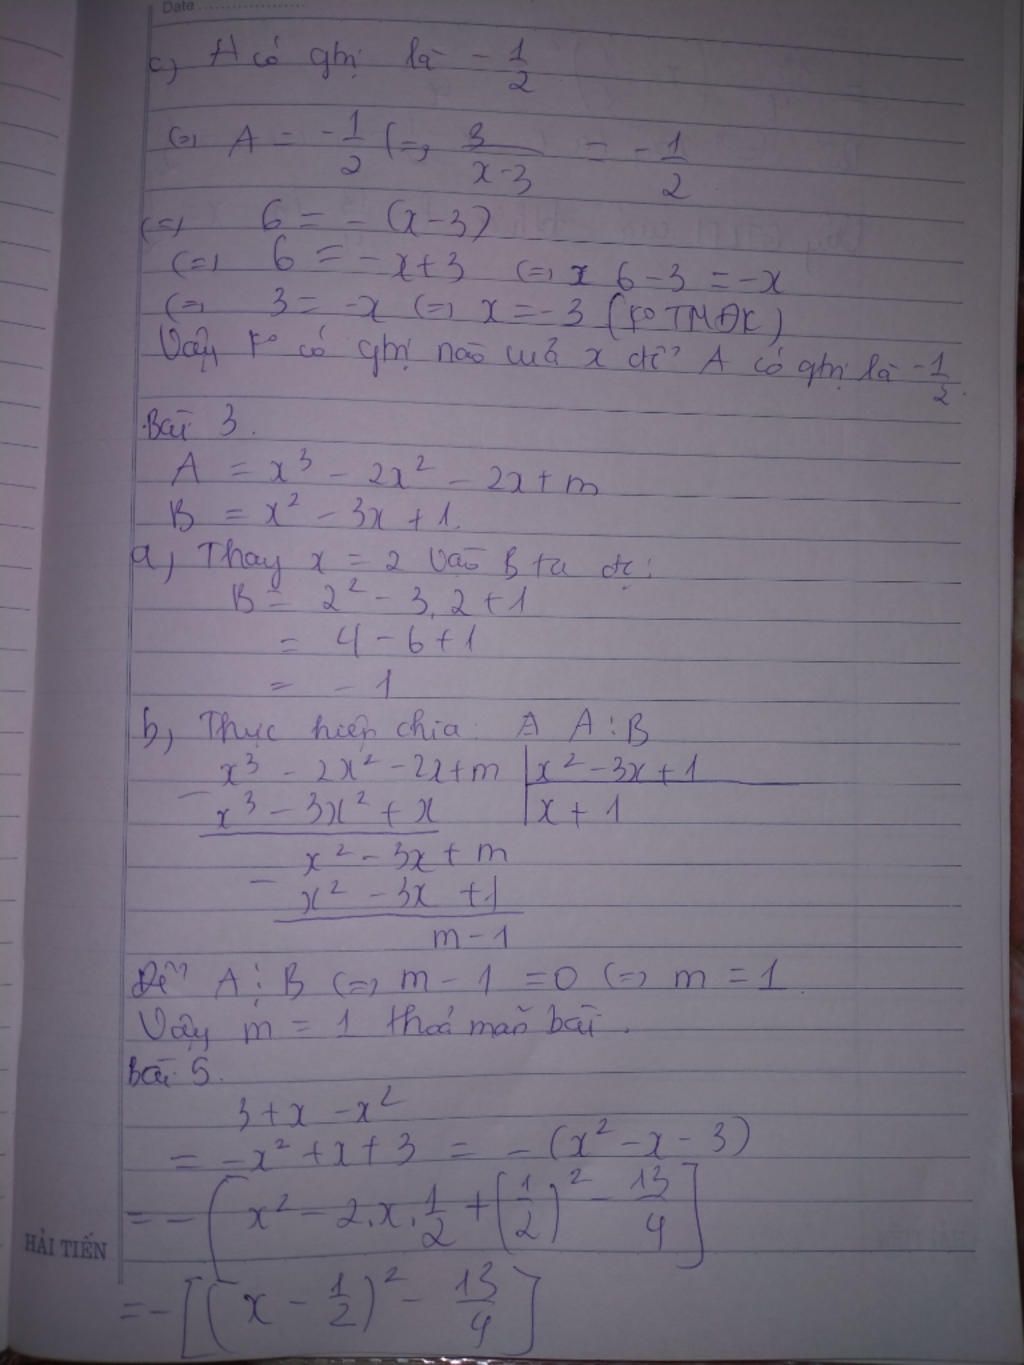 Date
c, A có gtrị là - 1/2
<=> A = - 1/2 <=> 3/(x-3) = - 1/2
<=> 6 = - (x-3)
<=> 6 = -x+3 <=> 6-3 = -x
<=> 3 = -x <=> x = -3 (ko TMĐK)
Vậy ko có gtrị nào của x để A có gtrị là - 1/2
Bài 3.
A = x³ - 2x² - 2x + m
B = x² - 3x + 1.
a, Thay x = 2 vào B ta đc:
B = 2² - 3.2 + 1
= 4 - 6 + 1
= - 1
b, Thực hiện chia: A A : B
x³ - 2x² - 2x + m | x² - 3x + 1
- x³ - 3x² + x | x + 1
x² - 3x + m
- x² - 3x + 1
m - 1
Để A ⋮ B <=> m - 1 = 0 <=> m = 1
Vậy m = 1 thoả mãn bài.
Bài 5.
3 + x - x²
= -x² + x + 3 = - (x² - x - 3)
= - [x² - 2.x.1/2 + (1/2)² - 13/4]
HẢI TIẾN
= - [(x - 1/2)² - 13/4]